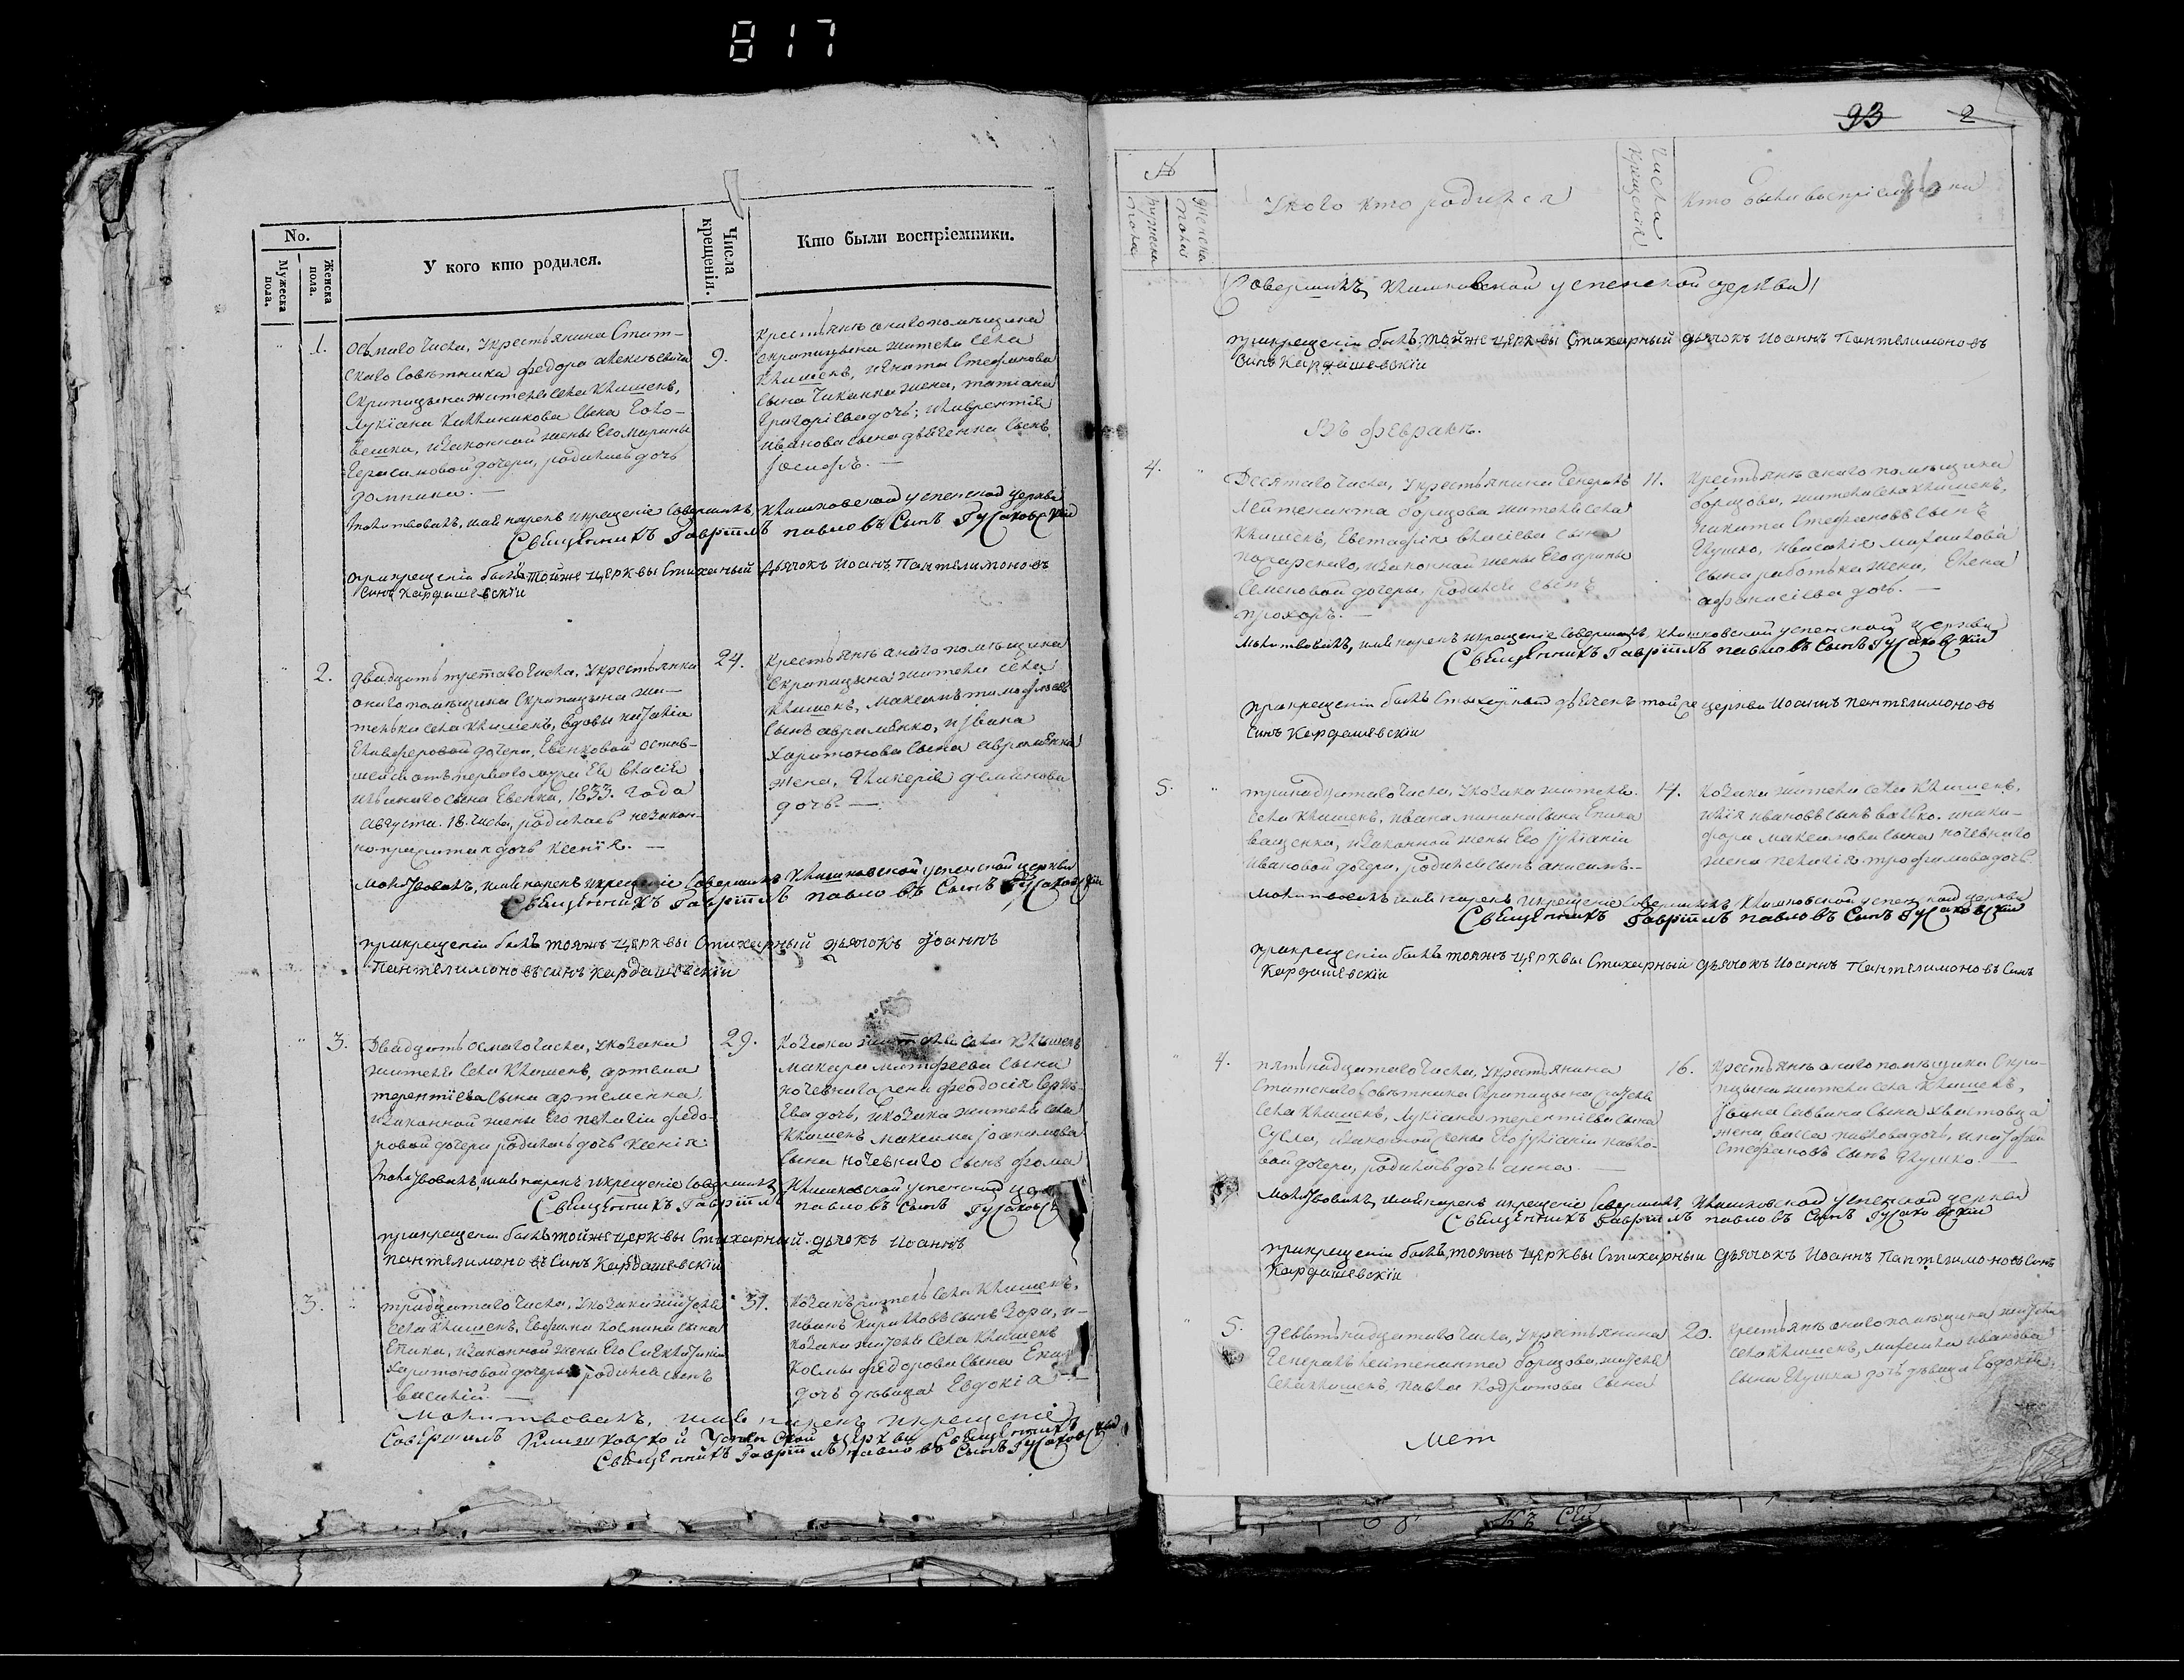 817
No.
Мужеска пола.
Женска пола.
У кого кто родился.
Числа крещенія.
Кто были воспріемники.
1.
осьмаго числа, у крестьянина Стат-
скаго Совѣтника Федора Алексѣевича
Скрипицына жителя села Клишекъ,
Лукіана Каленикова сына Голо-
вешки, изаконной жены Его Марины
Герасимовой дочери, родилась дочь
Домникія. —
9.
крестьянъ онаго помѣщика
Скрипицына жителя села
Клишекъ, Игната Стефанова
сына Чикалка жена, татіана
Григоріева дочь; и Лаврентія
Иванова сына дяченка сынъ
Іосифъ. —
молитвовалъ, имя нарекъ и крещеніе совершилъ, Клишковской успенской церкви
Священникъ Гавріилъ павловъ Сынъ Гусаковскій
при крещеніи былъ тойже церквы Стихарный дьячокъ Иоанъ Пантелимоновъ
синъ Кардашевскіи
2.
двадцать третаго числа, у крестьянки
онаго помѣщика Скрипицына жи-
тельки села Клишекъ, вдовы
Елиферовой дочери, Евенковой остав-
шейся отъ перваго мужа Ея Власія
сына Евенка, 1833. года
августа. 18. числа, родилась незакон-
но прижитая дочь Ксенія. —
24.
крестьянъ онаго помѣщика
Скрипицына жители села
Клишекъ, Максимъ тимофѣевъ
сынъ авраменко, и Ивана
Харитонова сына авраменка
жена, Гликерія демянова
дочь. —
молитвовалъ, имя нарекъ и крещеніе совершилъ Клишковской успенской церкви
Священникъ Гавріилъ павловъ Сынъ Гусаковскій
при крещеніи былъ тояжъ церквы Стихарный дьячокъ Іоаннъ
Пантелимоновъ синъ Кардашевскіи
3.
Двадцать осмаго числа, у козака
жителя села Клишекъ, артема
терентіева сына артеменка,
изаконной жены Его Пелагіи федо-
ровой дочери родилась дочь Ксенія.
29.
козака жителя села Клишекъ
макара матфеева сына
ночевнаго жена феодосія Серг-
ева дочь, и козака жителя села
Клишекъ максима Іоакимова
сына ночевнаго сынъ фома
молитвовалъ, имя нарекъ и крещеніе совершилъ, Клишковской успенской
Священникъ Гавріилъ павловъ Сынъ
при крещеніи былъ тойже церквы Стихарный дьячокъ Иоаннъ
пантелимоновъ Синъ Кардашевскіи
3.
тридцатаго числа, у козака жителя
села Клишекъ, Евфима Космина сына
Епика, изаконной жены Его
Харитоновой дочери родился сынъ
василій. —
31.
козакъ житель села Клишекъ,
иванъ Кириловъ сынъ Зора, и
козака жителя села Клишекъ
Космы федорова сына
дочь дѣвица Евдокіа —
молитвовалъ, имя нарекъ и крещеніе
Совершилъ Клишковской Успенской церкви Священникъ
Священникъ Гавріилъ павловъ Сынъ Гусаковскій
93
2
№
мужеска пола
женска пола
У кого кто родился
Числа крещенія
кто были воспріемники
Совершилъ, Клишковской успенской церкви
при крещеніи былъ, тойже церквы Стихарный дьячокъ Иоаннъ Пантелимоновъ
Синъ Кардашевскіи
Въ февралѣ.
4.
Десятаго числа, у крестьянина Генералъ
Лейтенанта борщова жителя села
Клишекъ, Евстафія Власіева сына
изаконной жены Его арины
Семеновой дочери, родился сынъ
прохоръ. —
11.
крестьянъ онаго помѣщика
борщова, жители села Клишекъ,
никита Стефановъ сынъ
Глушко, и василія
сына работька жена, Елена
афанасіева дочь. —
Молитвовалъ, имя нарекъ и крещеніе совершилъ, Клишковской успенской церкви
Священникъ Гавріилъ павловъ Сынъ Гусаковскій
при крещеніи былъ Стихарный дьячекъ той же церкви Иоаннъ пантелимоновъ
Синъ Кардашевскіи
5.
тринадцатаго числа, у козака жителя
села Клишекъ, ивана минина сына Епика
изаконной жены Его Іуліаніи
ивановой дочери, родился сынъ анисимъ.
14.
козаки жители села Клишекъ,
илія ивановъ сынъ и ники-
фора максимова сына ночевнаго
жена пелагія трофимова дочь.
молитвовалъ имя нарекъ и крещеніе совершилъ, Клишковской успенской церкви
Священникъ Гавріилъ павловъ Сынъ Гусаковскій
при крещеніи былъ тояжъ церквы Стихарный дьячокъ Иоаннъ Пантелимоновъ Синъ
Кардашевскіи
4.
пятнадцатаго числа, у крестьянина
Статскаго Совѣтника Скрипицына жителя
села Клишекъ, Лукіана терентіева сына
Сусла, изаконной жены Его Іуліаніи павло-
вой дочери, родилась дочь анна. —
16.
крестьянъ онаго помѣщика Скри-
пицына жители села Клишекъ,
Ивана Саввина сына Хвастовца
жена васса павлова дочь,
Стефановъ сынъ Глушко. —
молитвовалъ, имя нарекъ и крещеніе совершилъ, Клишковской успенской церкви
Священникъ Гавріилъ павловъ Сынъ Гусаковскій
при крещеніи былъ, тояжъ церквы Стихарныи дьячокъ Иоаннъ Пантелимоновъ Синъ
Кардашевскіи
5.
девятнадцатаго числа, у крестьянина
Генералъ лейтенанта борщова, жителя
села Клишекъ, павла Кодратова сына
20.
крестьянъ онаго помѣщика жителя
села Клишекъ, иванова
сына Глушка дочь дѣвица Евдокія
Мет